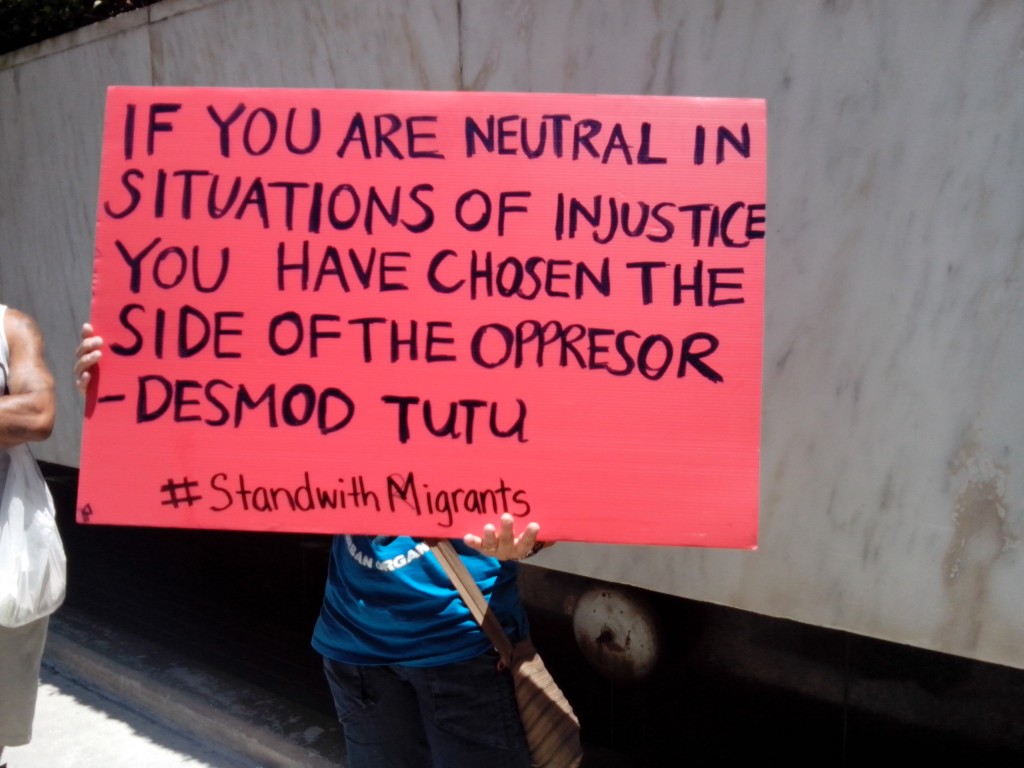 IF YOU ARE NEUTRAL IN
SITUATIONS OF INJUSTICE
YOU HAVE CHOSEN THE
SIDE OF THE OPPRESOR
-DESMOD TUTU
#StandwithMigrants